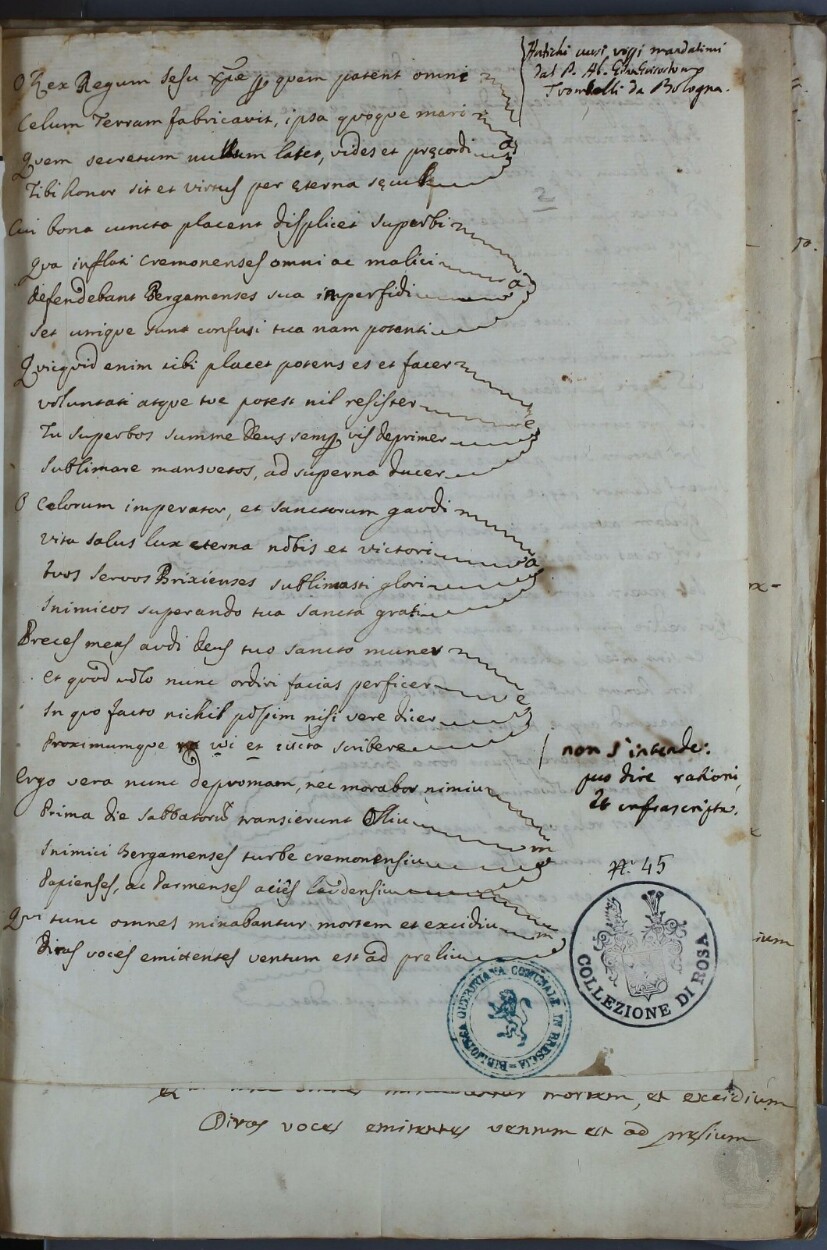 Antichi cui versi mandatimi
dal P. Ab. Gian Grisostomo
Trombelli da Bologna.
O Rex Regum Jesu xpe p quem patent omni
Celum Terram fabricavit, ipsa quoque mari
Quem secretum nullum latet, vides et precordi a
Tibi honor sit et virtus per eterna secul
2
Cui bona cuncta placent displicet superbi
Qua inflati Cremonenses omni ac malici a
defendebant Bergamenses sua in perfidi
Set unique sunt confusi tua nam potenti
Quicquid enim tibi placet potens es et facer
voluntati atque tue potest nil resister e
Tu superbos summe Deus semp vis deprimer
Sublimare mansuetos, ad superna ducer
O Celorum imperator, et Sanctorum gaudi
vita salus lux eterna nobis et victori a
tuos servos Brixienses sublimasti glori
Inimicos superando tua sancta grati
Preces meas audi deus tuo sancto muner
et quod volo nunc ordiri facias perficer e
In quo facto nichil possim nisi vere dicer
Proximumque ut vi et iuncta scribere
non s'intende:
puo dire rationi,
et infrascripta.
Ergo vera nunc depromam, nec morabor nimiu
Prima die Sabbatorum transierunt Olliu m
Inimici Bergamenses turbe cremonensiu
Papienses, ac Parmenses acies laudensiu
Qui tunc omnes minabantur mortem et excidiu m
Diras voces emittentes ventum est ad preliu
N. 45
COLLEZIONE DI ROSA
BIBLIOTECA QUIRINIANA COMUNALE IN BRESCIA
mortem, et excidium
Diras voces emittentes ventum est ad prelium